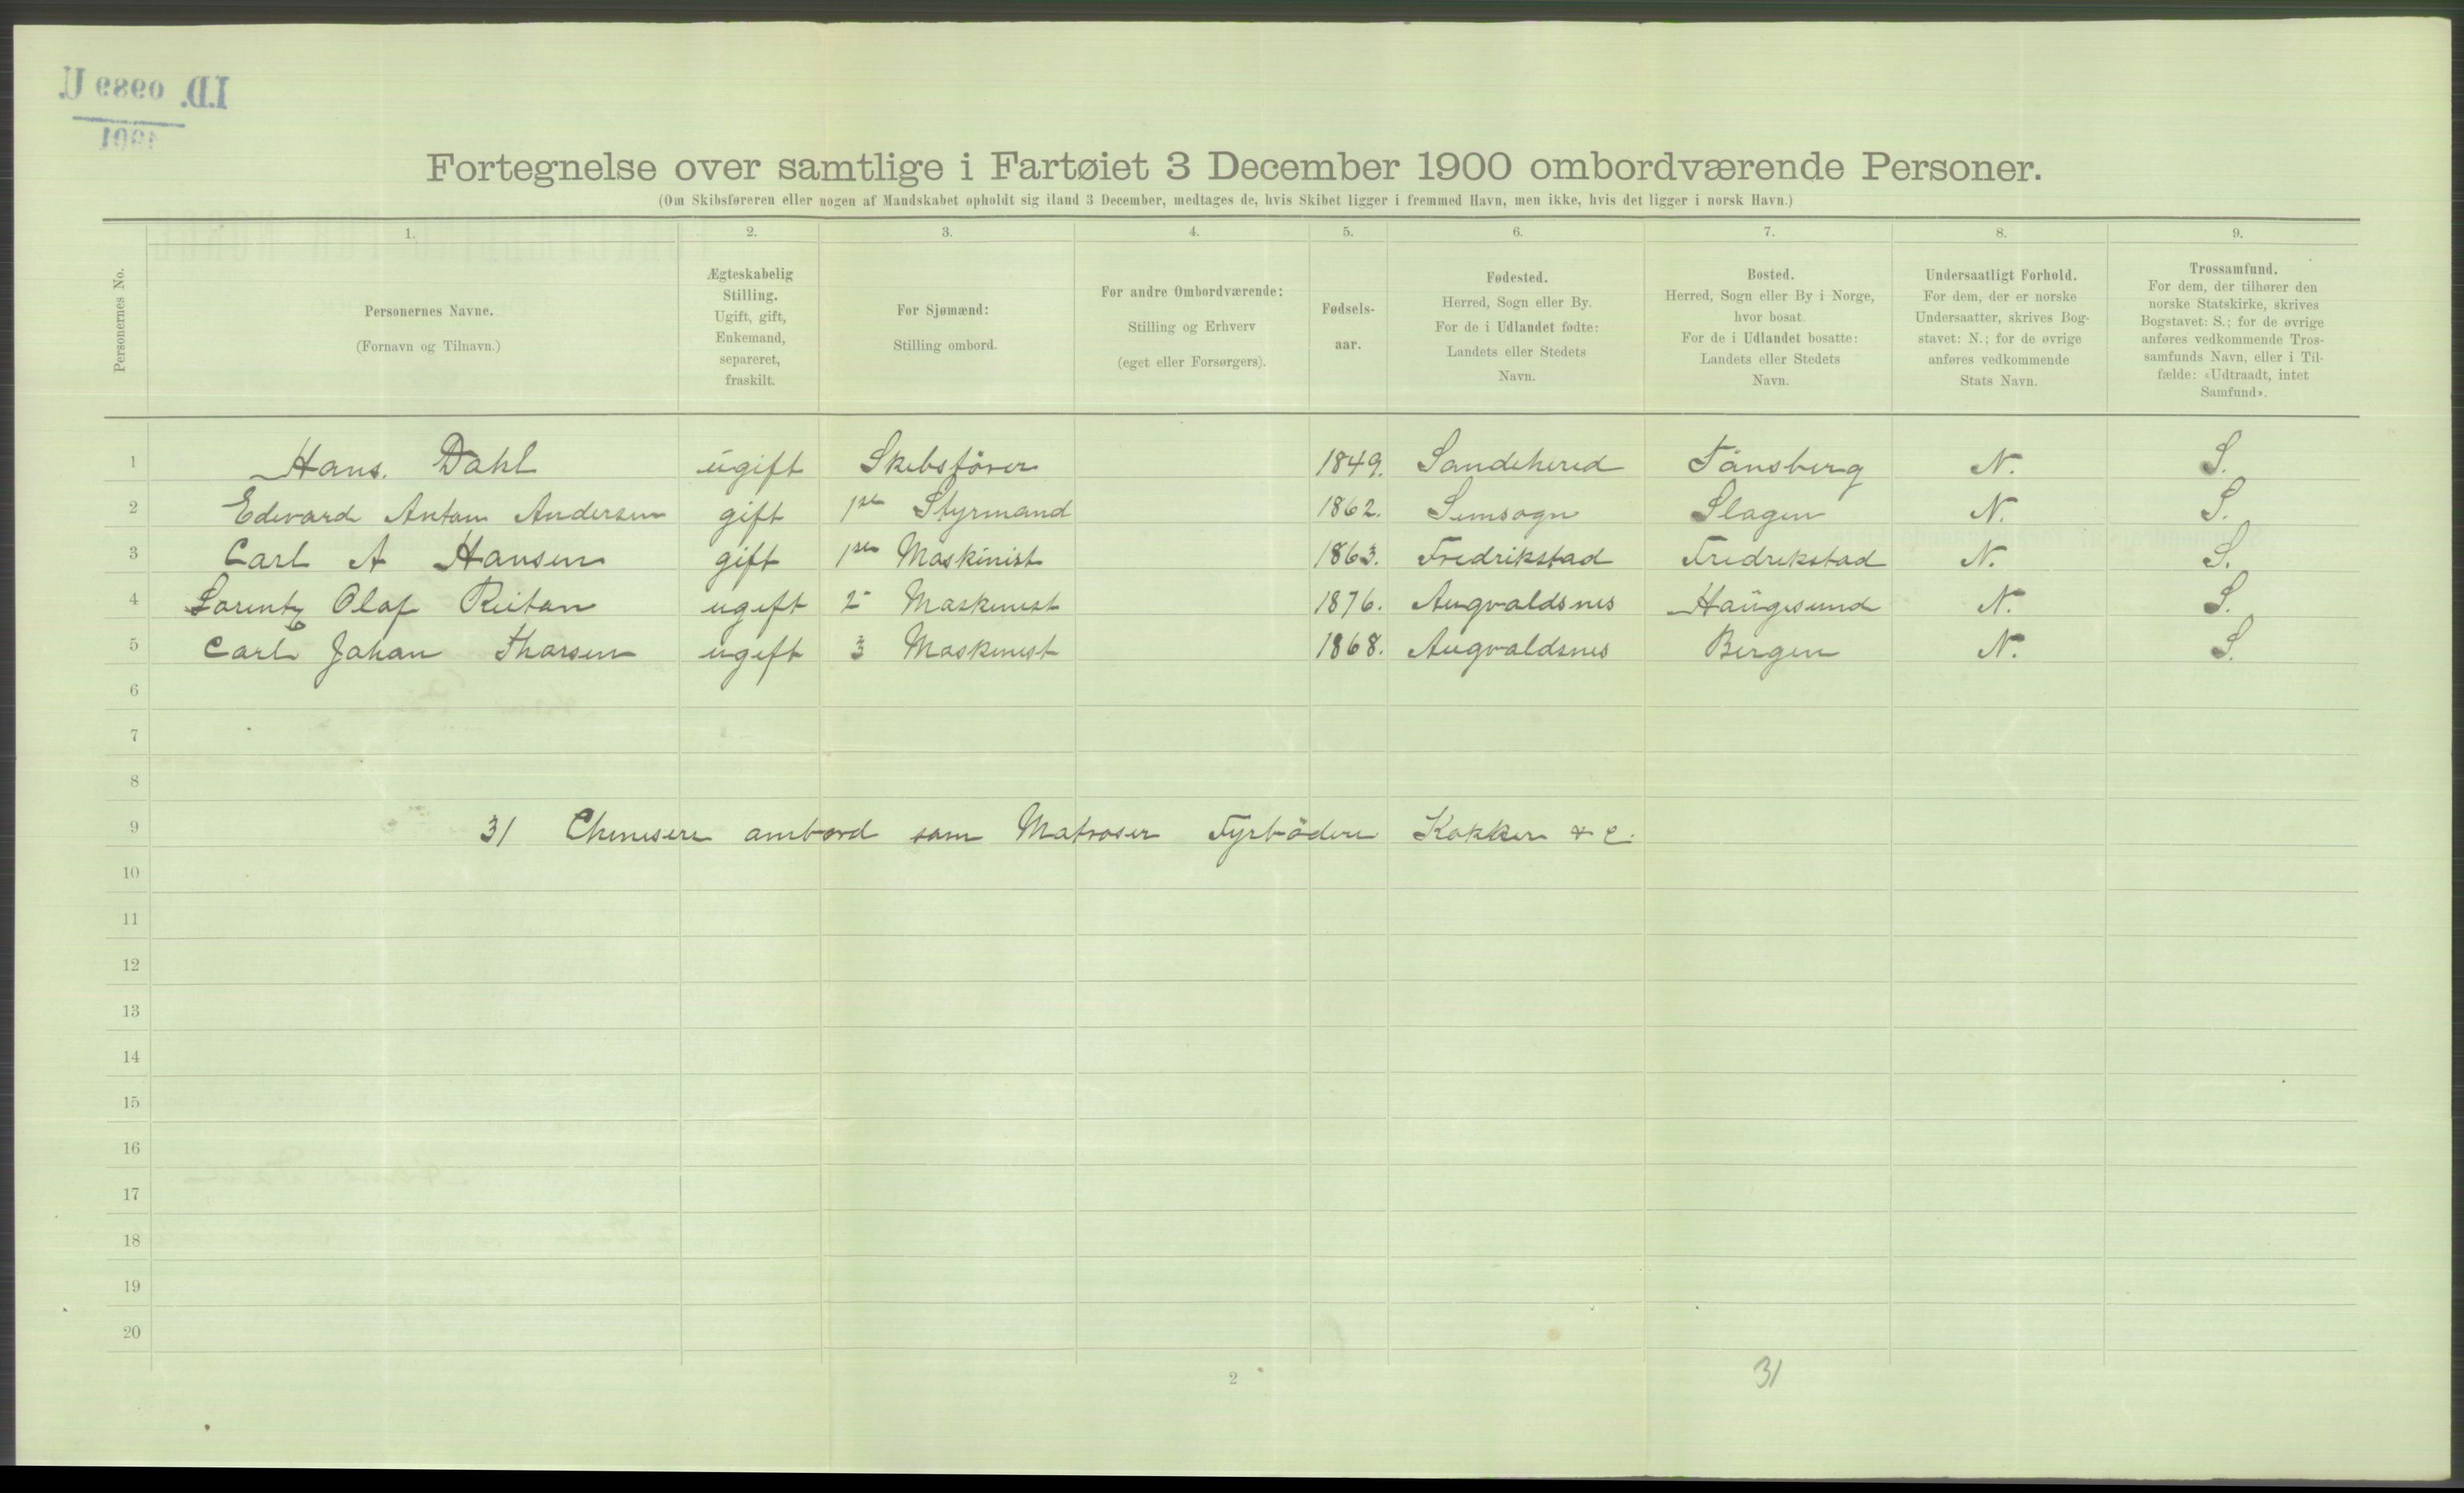 I.D. 0989 U.
1901
Fortegnelse over samtlige i Fartøiet 3 December 1900 ombordværende Personer.
(Om Skibsføreren eller nogen af Mandskabet opholdt sig iland 3 December, medtages de, hvis Skibet ligger i fremmed Havn, men ikke, hvis det ligger i norsk Havn.)
Personernes No.
1.
Personernes Navne.
(Fornavn og Tilnavn.)
2.
Ægteskabelig
Stilling.
Ugift, gift,
Enkemand,
separeret,
fraskilt.
3.
For Sjømænd:
Stilling ombord.
4.
For andre Ombordværende:
Stilling og Erhverv
(eget eller Forsørgers).
5.
Fødsels-
aar.
6.
Fødested.
Herred, Sogn eller By.
For de i Udlandet fødte:
Landets eller Stedets
Navn.
7.
Bosted.
Herred, Sogn eller By i Norge,
hvor bosat.
For de i Udlandet bosatte:
Landets eller Stedets
Navn.
8.
Undersaatligt Forhold.
For dem, der er norske
Undersaatter, skrives Bog-
stavet: N.; for de øvrige
anføres vedkommende
Stats Navn.
9.
Trossamfund.
For dem, der tilhører den
norske Statskirke, skrives
Bogstavet: S.; for de øvrige
anføres vedkommende Tros-
samfunds Navn, eller i Til-
fælde: «Udtraadt, intet
Samfund».
1 Hans. Dahl ugift Skibsförer 1849. Sandeherred Tönsberg N. S.
2 Edvard Anton Andersen gift 1ste Styrmand 1862. Semsogn Slagen N. S.
3 Carl A Hansen gift 1ste Maskinist 1863. Fredrikstad Fredrikstad N. S.
4 Lorentz Olaf ugift 2 Maskinist 1876. Augvaldsnes Haugesund N. S.
5 Carl Johan Thorsen ugift 3 Maskinist 1868. Augvaldsnes Bergen N. S.
6
7
8
9 31 Chinesere ombord som Matroser Fyrbödere Kokker & c.
10
11
12
13
14
15
16
17
18
19
20
2
31